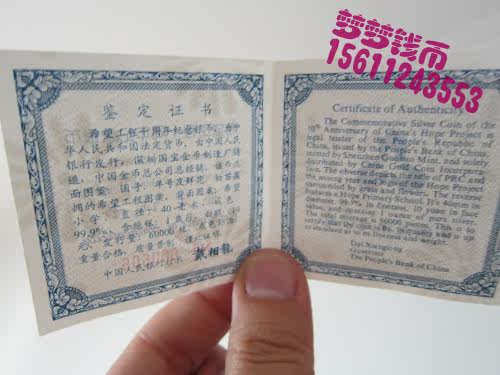 梦梦钱币
15611243553
鉴定证书
希望工程十周年纪念银币,为中
华人民共和国法定货币,由中国人民
银行发行,深圳国宝金币制造厂铸
造,中国金币总公司总经销。该币正
面图案:国号、年号
的希望工程图案。背面图案:希望
小学。直径:40毫米,成色:
99.9%,含纯银:1盎司,面额:10
元,发行量:60000枚,成色标准,
重量合格,质量普制,谨此证明。
中国人民银行行长 戴相龙
Certificate of Authenticity
The Commemorative Silver Coin of the
10th Anniversary of China's Hope Project is
legal tender of the People's Republic of
China, issued by the People's Bank of China,
minted by Shenzhen Guobao Mint, and solely
distributed by China Gold Coin Incorporation.
The obverse depicts the title of PRC, and
the minting year and logo of the Hope Project
surrounded by
features a Hope Primary School. It's
99.9%
value, and contains 1 ounce of pure silver.
The total mintage is 60000 pieces. This is
to certify that the coin is
to standard as to its fineness and weight.
Dai Xianglong
Governor
The People's Bank of China